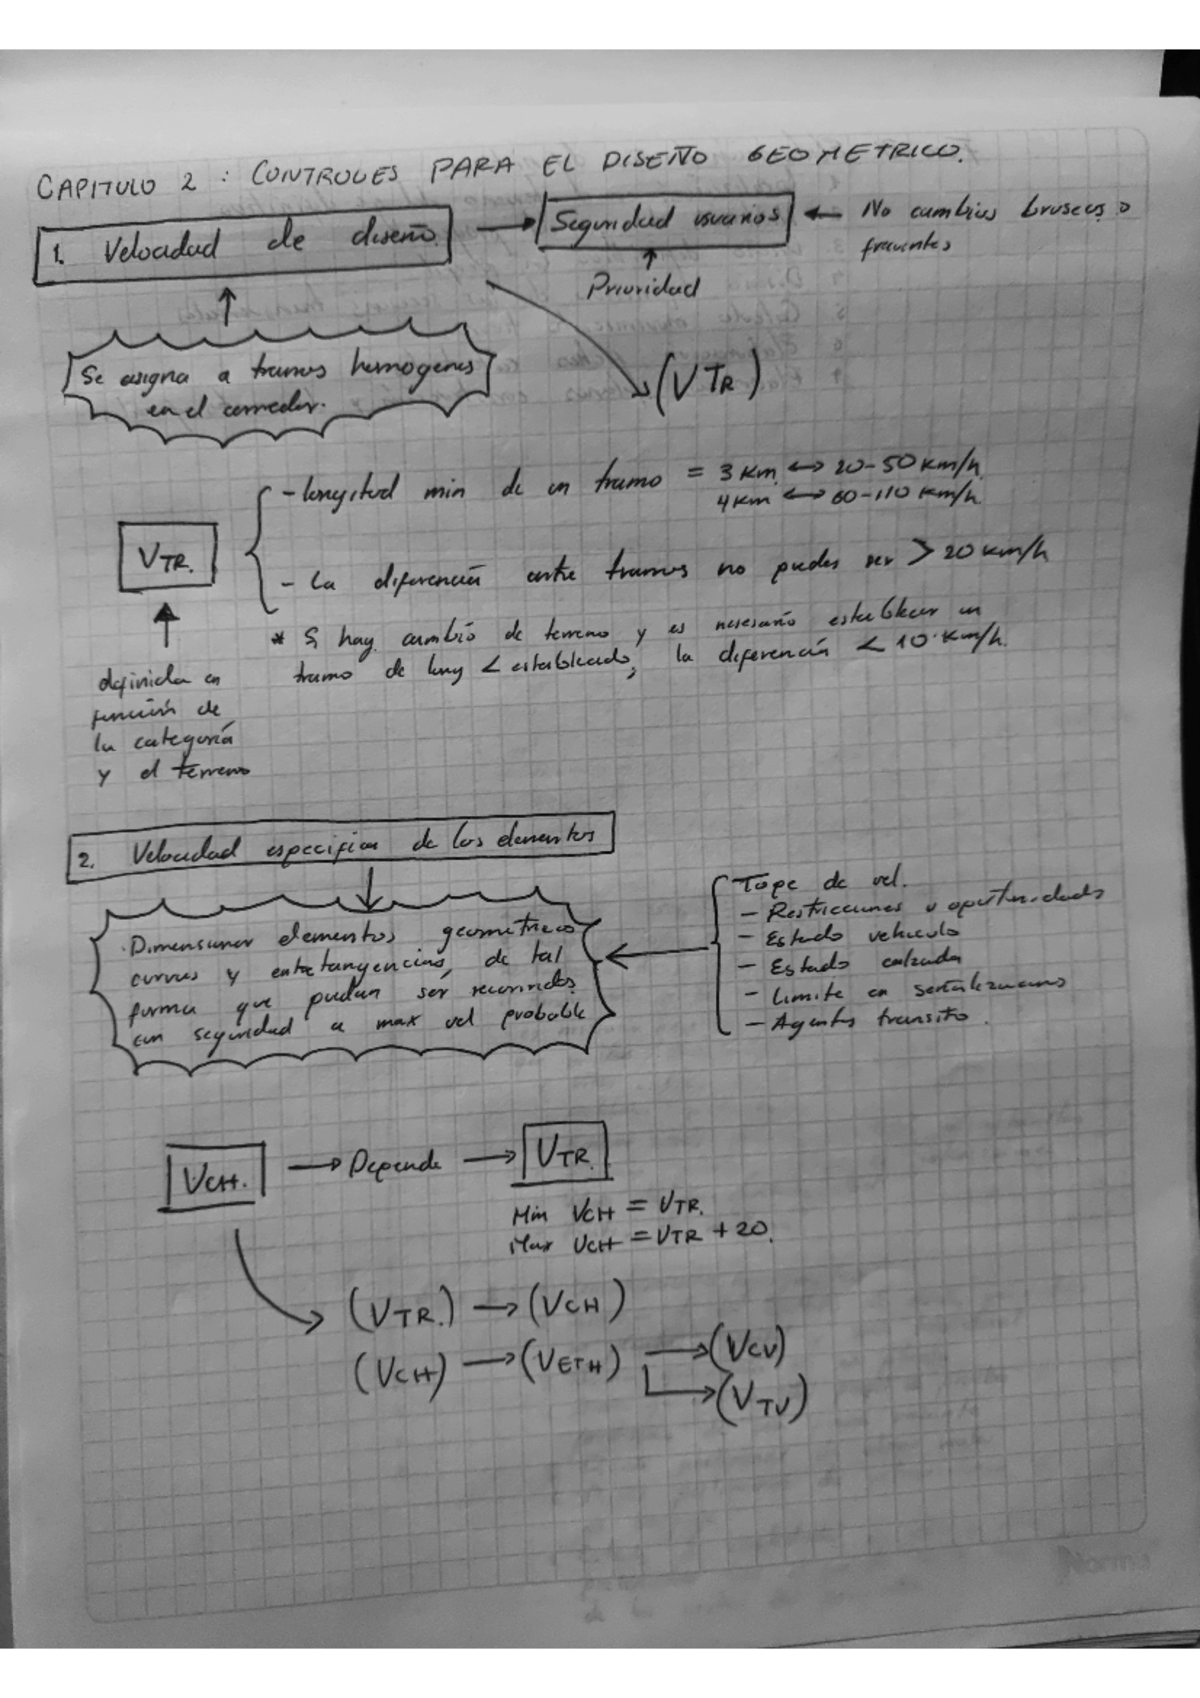 CAPITULO 2 : CONTROLES PARA EL DISEÑO GEOMETRICO.
1. Velocidad de diseño
Seguridad usuarios
No cambios bruscos o
frecuentes
Prioridad
Se asigna a tramos homogeneos
en el corredor.
(VTR)
VTR.
- longitud min de un tramo = 3 Km ↔ 20-50 Km/h
4 Km ↔ 60-110 Km/h
- La diferencia entre tramos no puedes ser > 20 Km/h
* Si hay cambio de terreno y es necesario establecer un
tramo de long < establecido, la diferencia < 10 Km/h.
definida en
función de
la categoría
y el terreno
2. Velocidad especifica de los elementos
Dimensionar elementos geometricos
curvas y entretangencias, de tal
forma que puedan ser recorridos
con seguridad a max vel probable
Tope de vel.
- Restricciones u oportunidades
- Estado vehiculo
- Estado calzada
- Limite en señalizaciones
- Agentes transito.
VCH. → Depende → VTR.
Min VCH = VTR.
Max VCH = VTR + 20.
(VTR.) → (VCH)
(VCH) → (VETH) → (VCV)
→ (VTV)
Norma